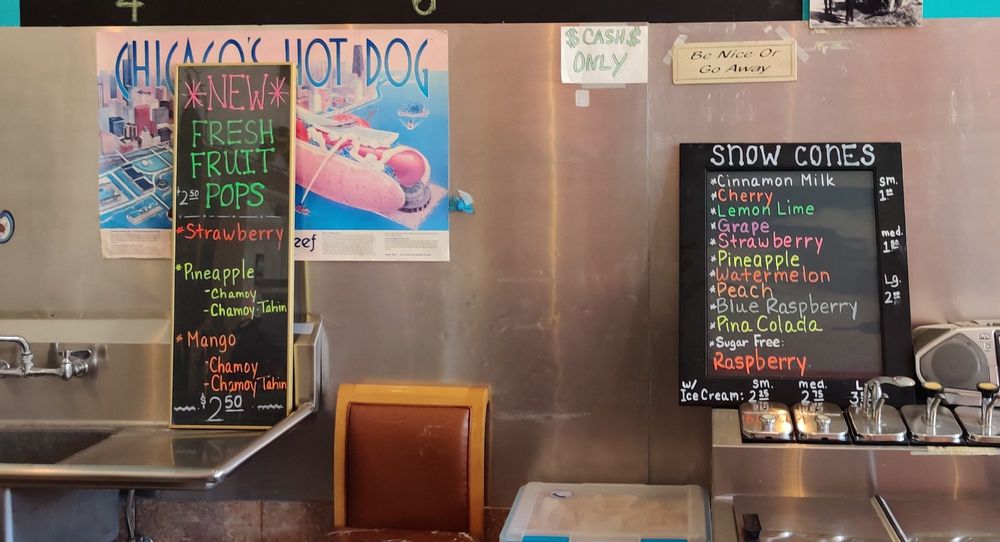 4
6
CHICAGO'S HOT DOG
$CASH$
ONLY
Be Nice Or
Go Away
*NEW*
FRESH
FRUIT
POPS
$2.50
*Strawberry
*Pineapple
-Chamoy
-Chamoy-Tahin
*Mango
-Chamoy
-Chamoy Tahin
$2.50
SNOW CONES
*Cinnamon Milk
*Cherry
*Lemon Lime
*Grape
*Strawberry
*Pineapple
*Watermelon
*Peach
*Blue Raspberry
*Pina Colada
*Sugar Free:
Raspberry
sm.
med.
Lg.
w/ sm. med. L
Ice Cream: 2.25 2.75 3